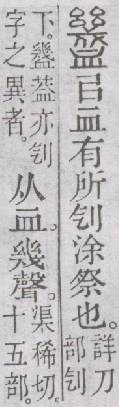 䘒㠯血有所刉涂祭也。詳刀部刉
下。䘒葢亦刉字之異者。从血。幾聲。渠稀切。十五部。